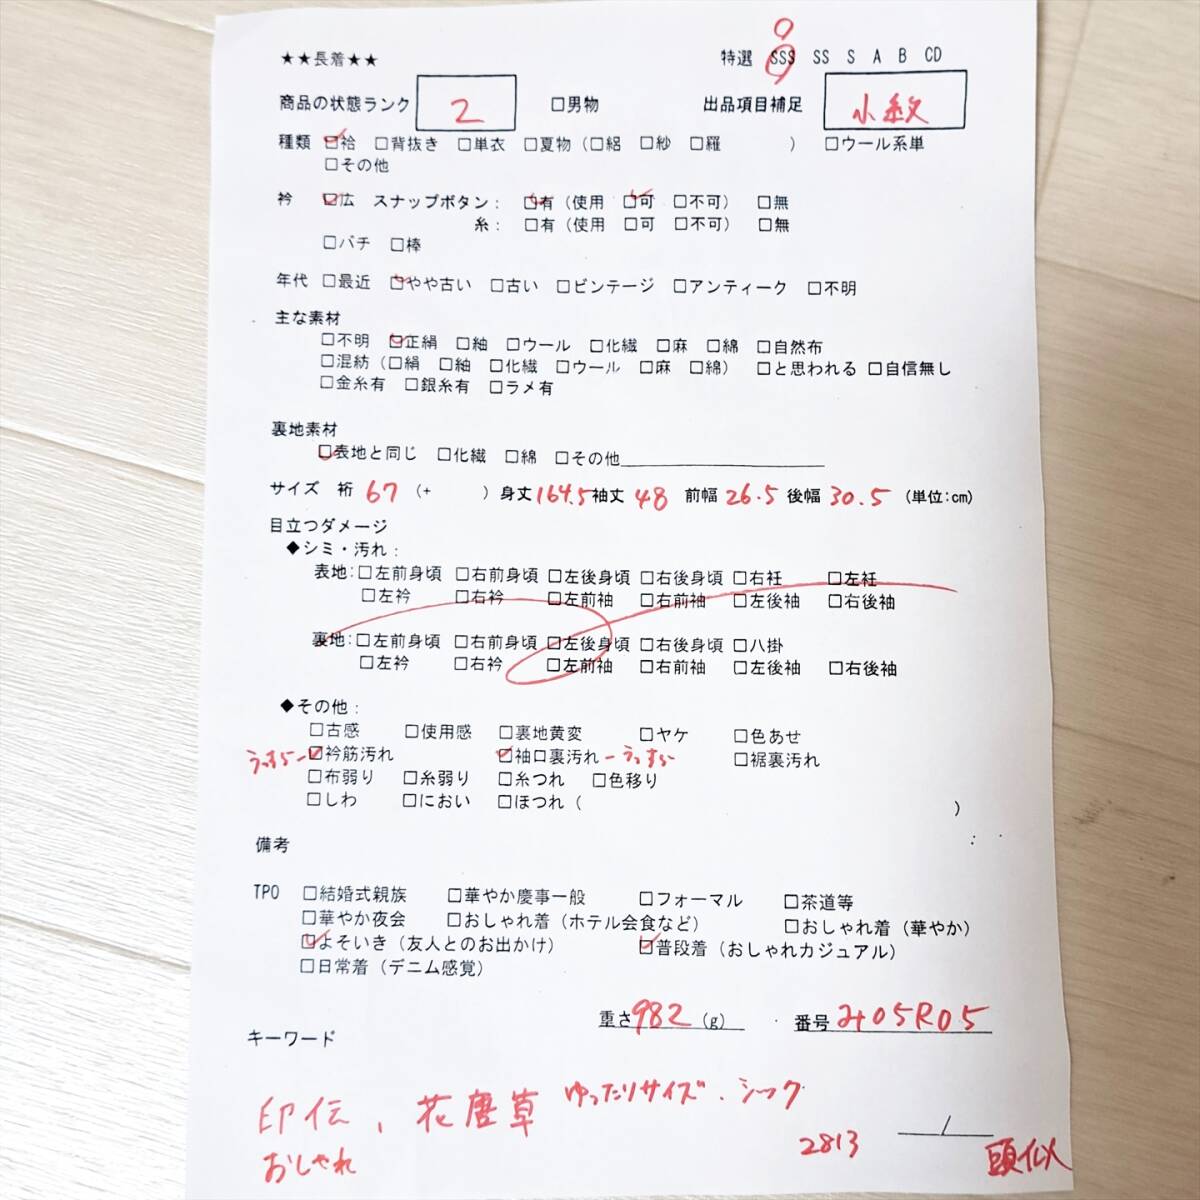 ★★長着★★ 特選 SSS SS S A B CD
商品の状態ランク 2 □男物 出品項目補足 小紋
種類 ☑袷 □背抜き □単衣 □夏物（□絽 □紗 □羅 ） □ウール系単
□その他
衿 ☑広 スナップボタン： ☑有（使用 ☑可 □不可） □無
糸： □有（使用 □可 □不可） □無
□バチ □棒
年代 □最近 ☑やや古い □古い □ビンテージ □アンティーク □不明
主な素材
□不明 ☑正絹 □紬 □ウール □化繊 □麻 □綿 □自然布
□混紡（□絹 □紬 □化繊 □ウール □麻 □綿） □と思われる □自信無し
□金糸有 □銀糸有 □ラメ有
裏地素材
☑表地と同じ □化繊 □綿 □その他
サイズ 裄 67 （+ ）身丈 164.5 袖丈 48 前幅 26.5 後幅 30.5 （単位:cm）
目立つダメージ
◆シミ・汚れ：
表地:□左前身頃 □右前身頃 □左後身頃 □右後身頃 □右衽 □左衽
□左衿 □右衿 □左前袖 □右前袖 □左後袖 □右後袖
裏地:□左前身頃 □右前身頃 □左後身頃 □右後身頃 □八掛
□左衿 □右衿 □左前袖 □右前袖 □左後袖 □右後袖
◆その他：
□古感 □使用感 □裏地黄変 □ヤケ □色あせ
うっすらー ☑衿筋汚れ ☑袖口裏汚れ ーうっすら □裾裏汚れ
□布弱り □糸弱り □糸つれ □色移り
□しわ □におい □ほつれ（ ）
備考
TPO □結婚式親族 □華やか慶事一般 □フォーマル □茶道等
□華やか夜会 □おしゃれ着（ホテル会食など） □おしゃれ着（華やか）
☑よそいき（友人とのお出かけ） ☑普段着（おしゃれカジュアル）
□日常着（デニム感覚）
重さ 982 （g） 番号 みの5R05
キーワード
印伝、花唐草 ゆったりサイズ、シック
おしゃれ 2813 /